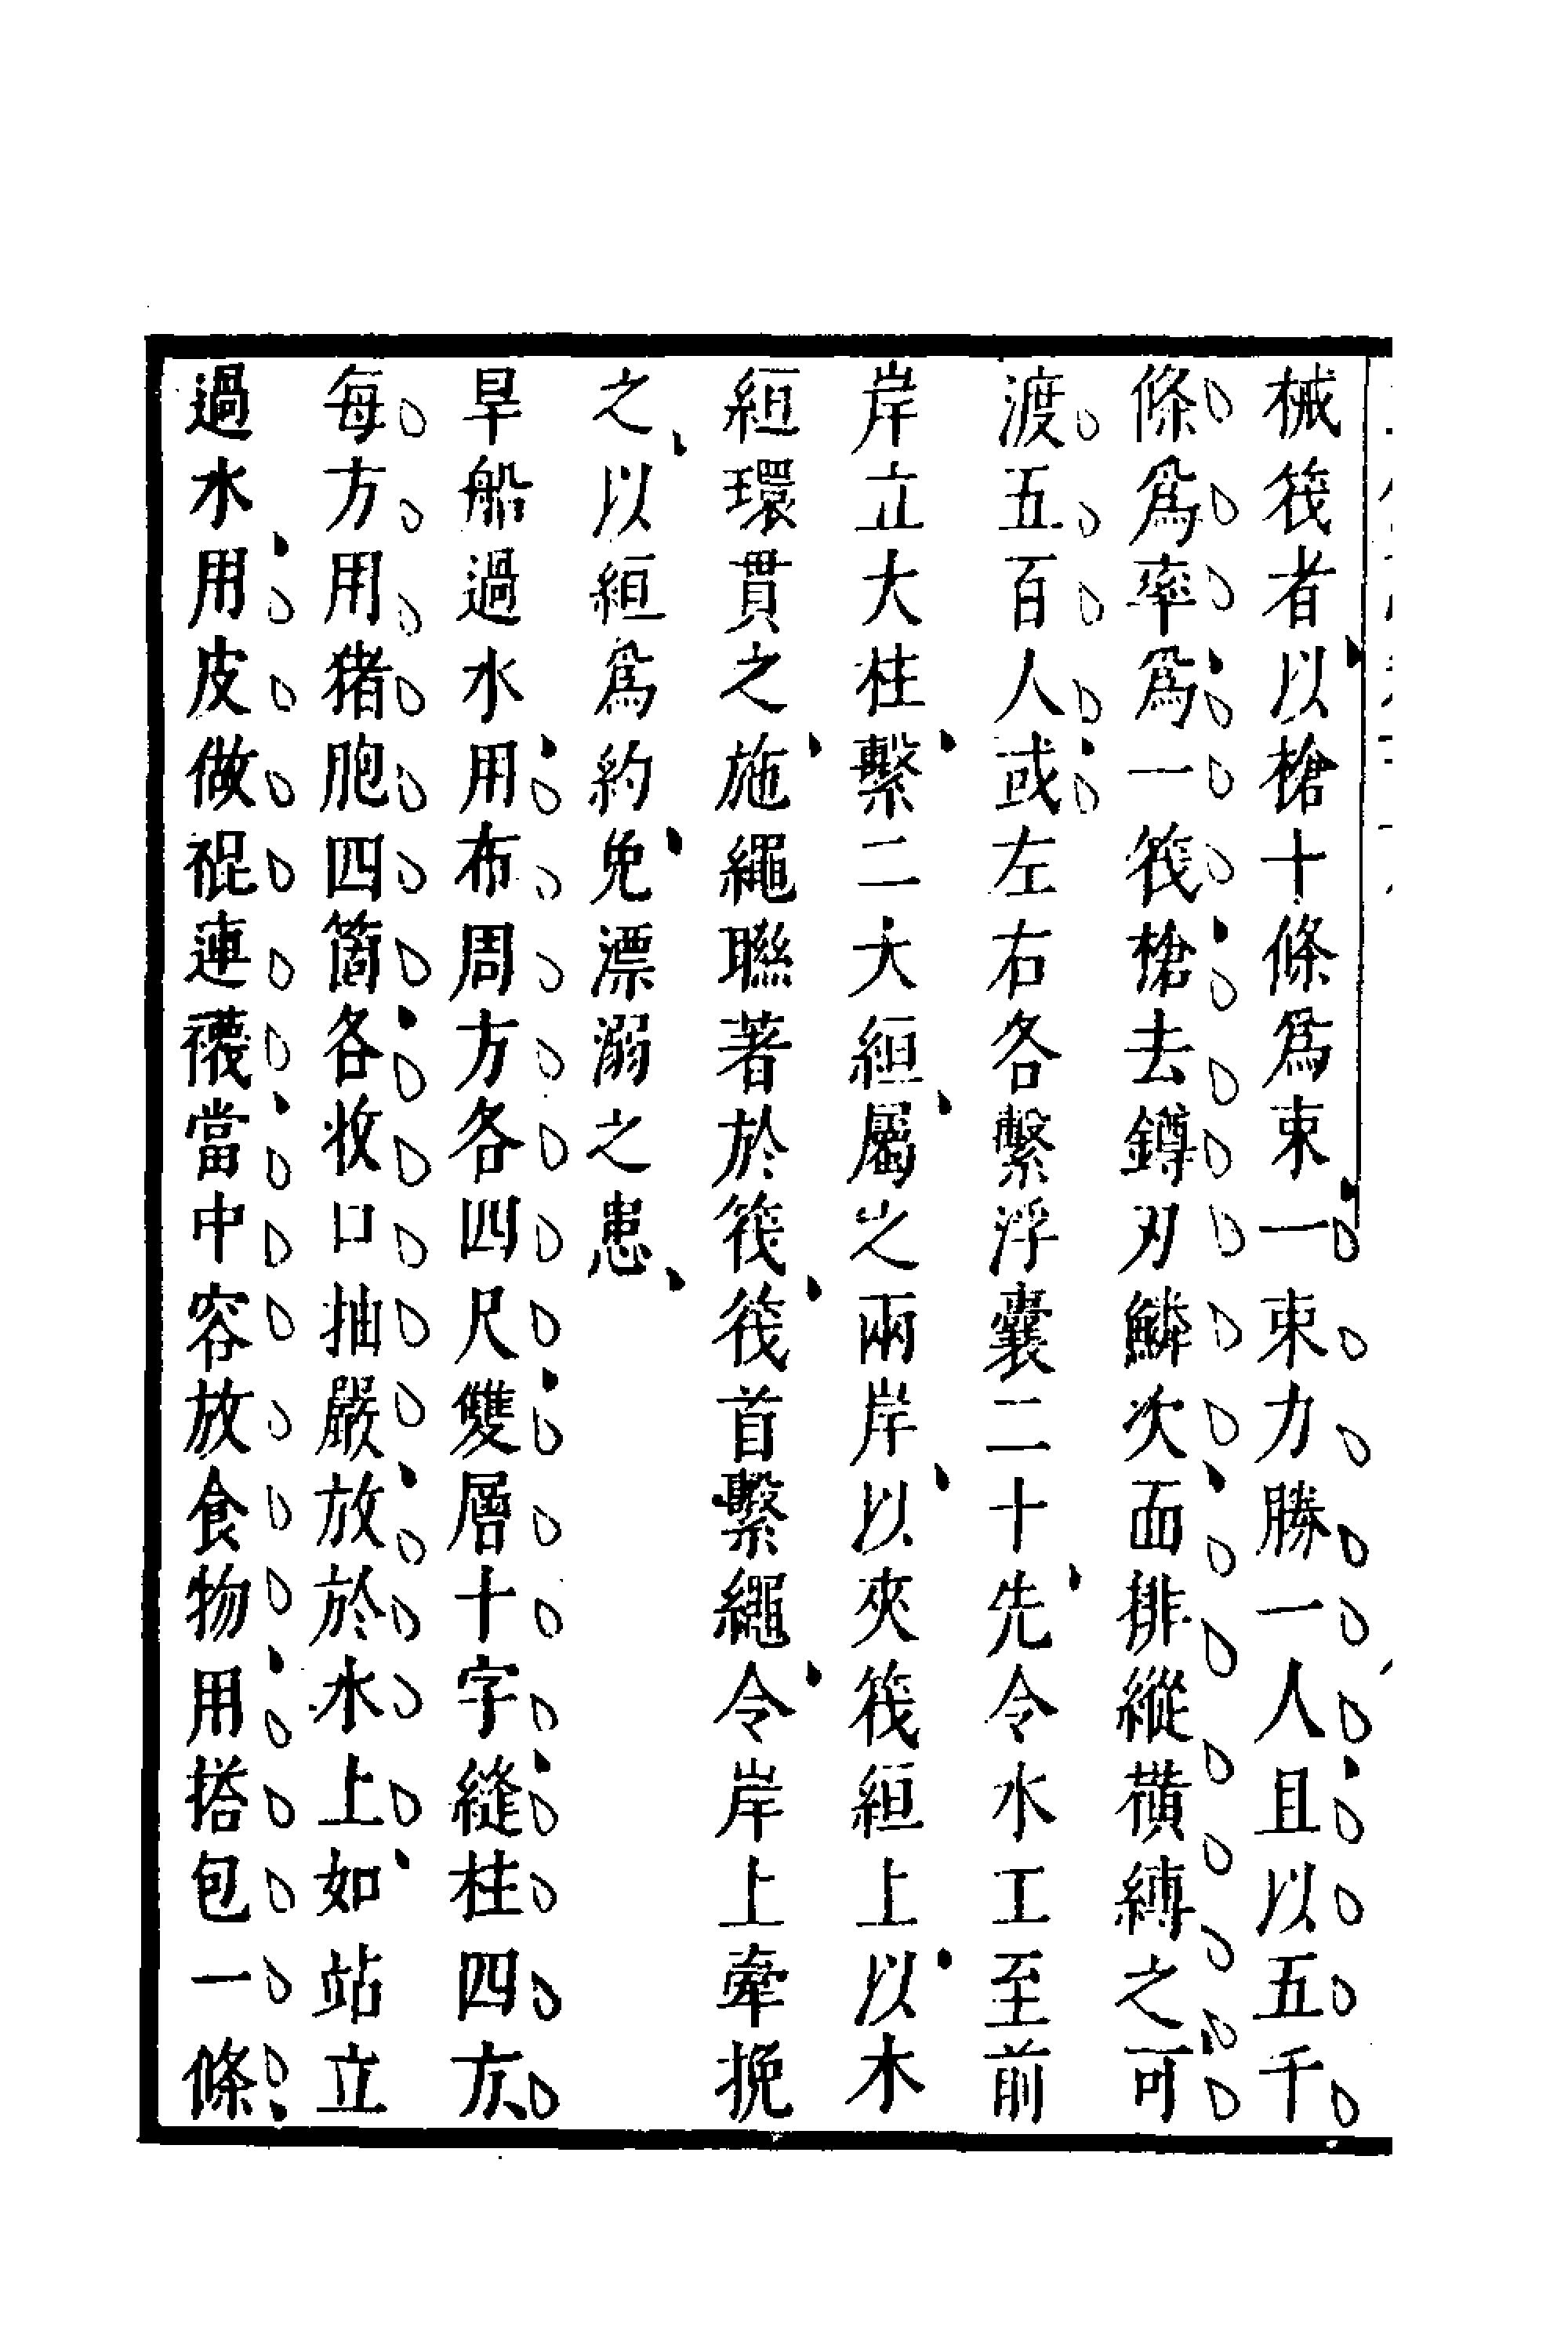 械筏者以槍十條爲束一束力勝一人且以五千
條爲率爲一筏槍去鐏刃鱗次面排縱橫縛之可
渡五百人或左右各繫浮囊二十先令水工至前
岸立大柱繫二大絙屬之兩岸以夾筏絙上以木
絙環貫之施繩聯著於筏筏首繫繩令岸上牽挽
之以絙爲約免漂溺之患
旱船過水用布周方各四尺雙層十字縫柱四方
每方用猪胞四箇各收口抽嚴放於水上如站立
過水用皮做裩連襪當中容放食物用搭包一條